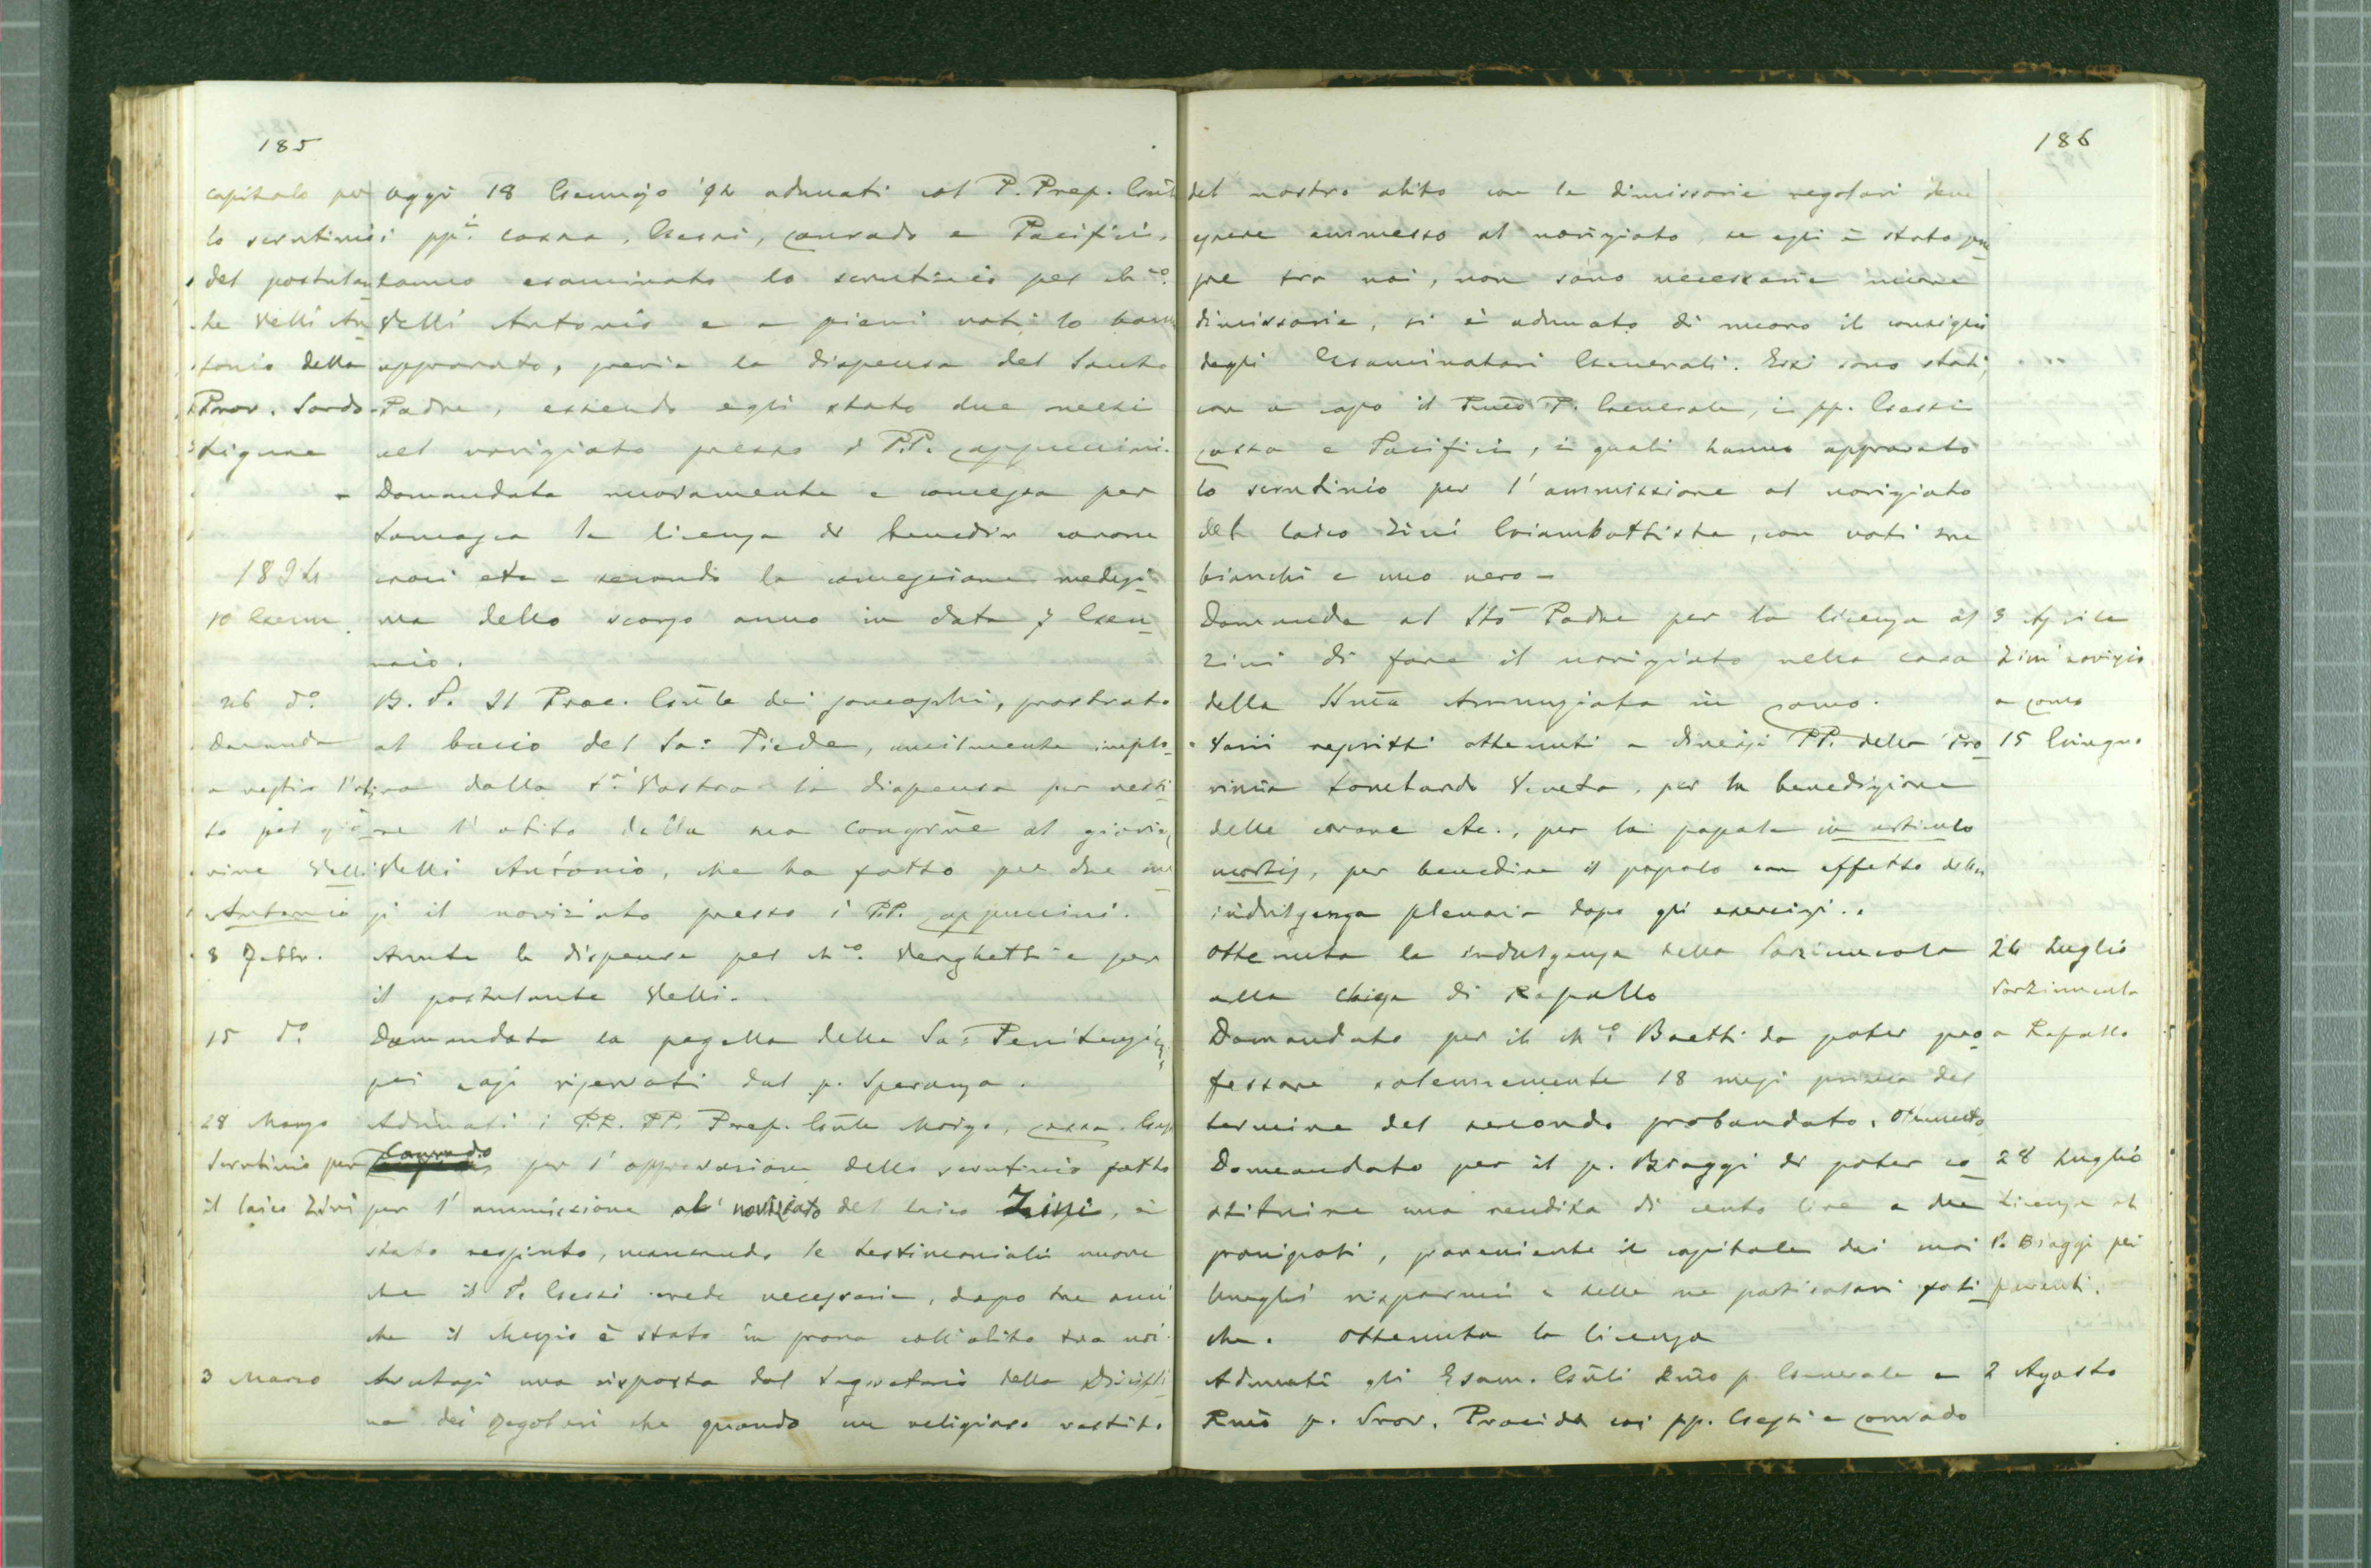 185
capitolo per
lo scrutinio
del postulan-
te Velli An-
tonio della
Prov. Sardo-
Ligure
Oggi 18 Gennajo '92 adunati col P. Prep. Gnle
i ppi. Cossa, Gessi, Conrado e Pacifici,
hanno esaminato lo scrutinio pel ch.co
Velli Antonio e a pieni voti lo hanno
approvato, previa la dispensa del Santo
Padre, essendo egli stato due mesi
nel noviziato presso i P.P. Cappuccini.
Domandata nuovamente e concessa per
la licenza di benedir corone
croci etc - secondo la concessione medesi-
ma dello scorso anno in data 7 Gen-
naio.
1894
10 Genn.
26 do.
Domanda
a vestir l'abi-
to pel gio-
vine Velli
Antonio
B. P. Il Proc. Gnle dei Somaschi, prostrato
al bacio del Sa: Piede, umilmente implo-
ra dalla Sà Vostra la dispensa per vesti-
re l'abito della sua Congrne al giovine
Velli Antonio, che ha fatto per due me-
si il noviziato presso i P.P. Cappuccini.
8 Febbr.
Avute le dispense pel ch.co Verghetti e per
il postulante Velli.
15 do
Domandata la pagella della Sa: Penitenzia
pei casi riservati dal p. Speranza.
28 Marzo
Scrutinio per
il laico Zini
Adunati i P.P. PP. Prep. Gnle Moizo, Cossa, Gessi
Conrado per l'approvazione dello scrutinio fatto
per l'ammissione al noviziato del laico Zini, è
stato respinto, mancando le testimoniali nuove
che il P. Gessi crede necessarie, dopo tre anni
che il è stato in prova coll'abito tra noi.
3 Marzo
Avutasi una risposta dal Segretario della Discipli-
na dei Regolari che quando un religioso vestito
186
del nostro abito con le dimissorie regolari deve
essere ammesso al noviziato, se egli è stato sem-
pre tra noi, non sono necessarie nuove
dimissorie, si è adunato di nuovo il consiglio
degli Esaminatori Generali. Essi sono stati,
con a capo il Rmo P. Generale, i pp. Gessi
Cossa e Pacifici, i quali hanno approvato
lo scrutinio per l'ammissione al noviziato
del laico Zini Giambattista, con voti tre
bianchi e uno nero -
Domanda al Sto Padre per la licenza al
Zini di fare il noviziato nella casa
della SSma Annunziata in Como.
3 Aprile
Zini novizio
a Como
Varii rescritti ottenuti a diversi PP. della Pro-
vincia Lombardo Veneta, per la benedizione
delle corone etc., per la papale in articulo
mortis, per benedire il popolo con effetto della
indulgenza plenaria dopo gli esercizi..
15 Giugno
Ottenuta la indulgenza della Porziuncola
alla Chiesa di Rapallo
24 Luglio
Porziuncola
a Rapallo
Domandato per il ch.co Baetti da poter pro-
fessare solennemente 18 mesi prima del
termine del secondo probandato. Ottenuto
Domandato per il p. Biaggi di poter co-
stituire una rendita di cento lire a due
pronipoti, proveniente il capitale dai suoi
lunghi risparmi e dalle sue particolari fati-
che. Ottenuta la licenza
28 Luglio
Licenza al
P. Biaggi pei
parenti.
Adunati gli Esam. Gnli Rmo p. Generale e
Rmo p. Prov. Procida coi pp. Gessi e Conrado
2 Agosto